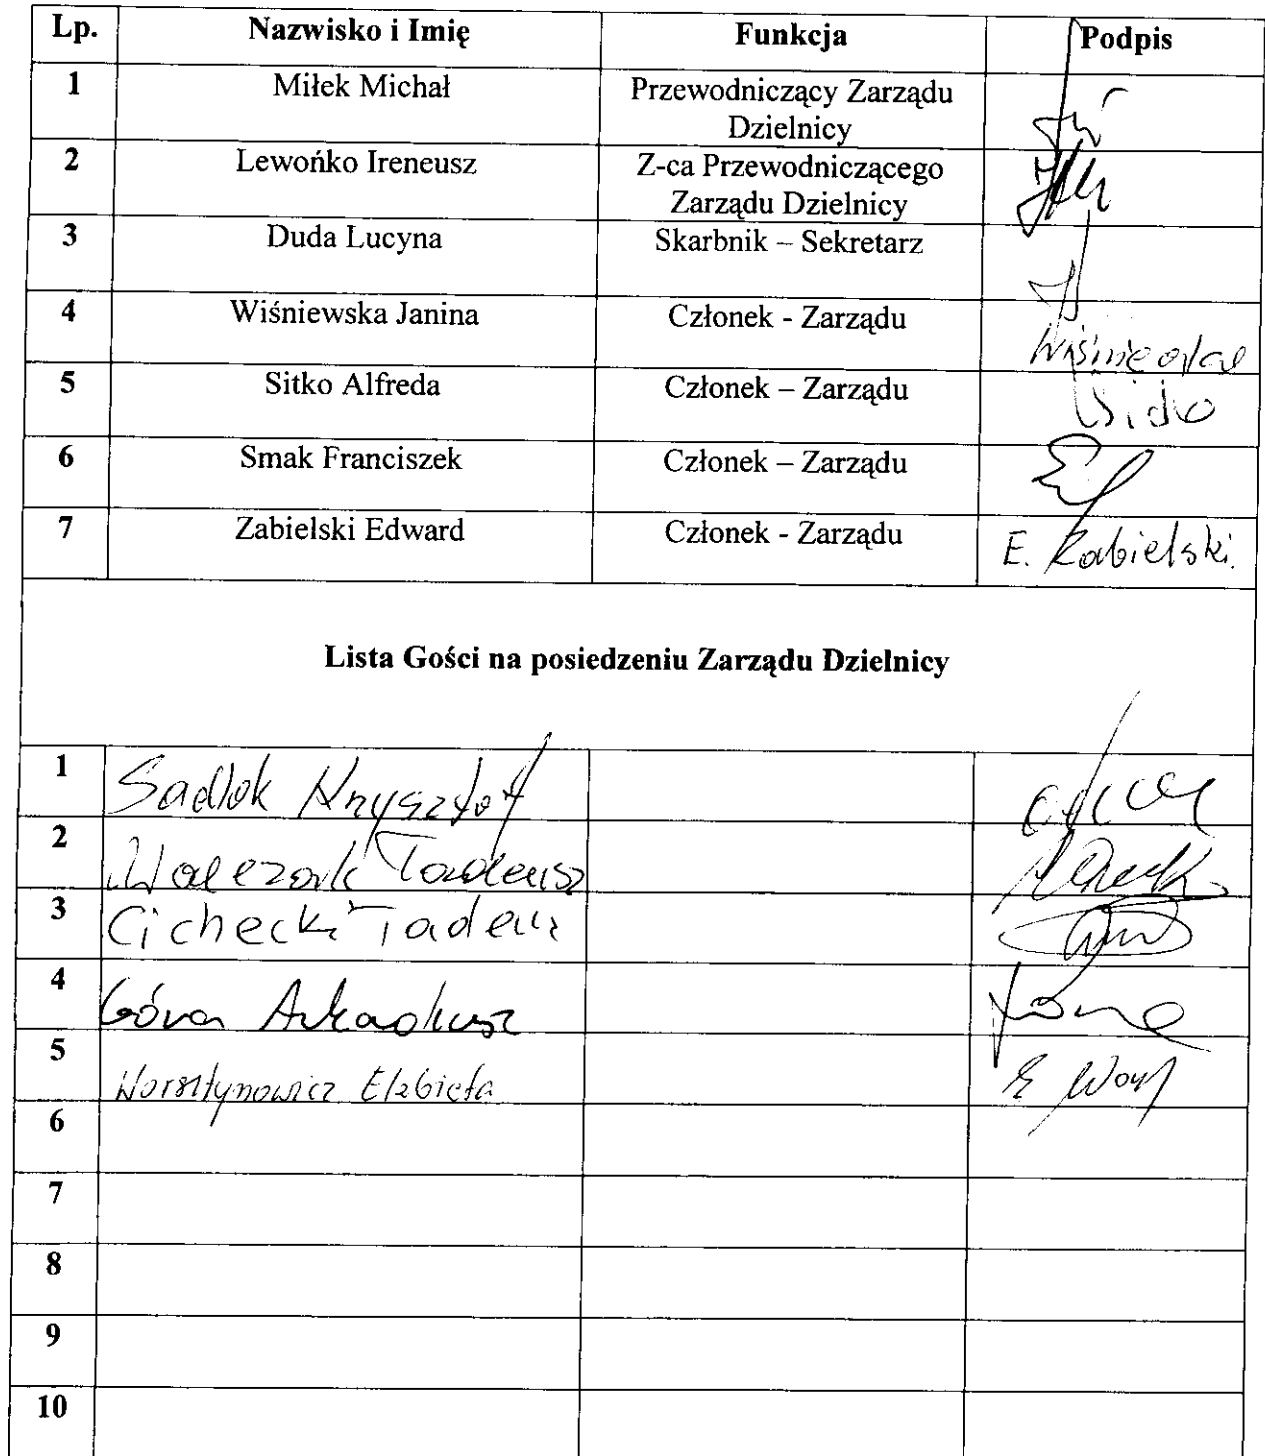 Lp. Nazwisko i Imię Funkcja Podpis
1 Miłek Michał Przewodniczący Zarządu
Dzielnicy
2 Lewońko Ireneusz Z-ca Przewodniczącego
Zarządu Dzielnicy
3 Duda Lucyna Skarbnik – Sekretarz
4 Wiśniewska Janina Członek - Zarządu
5 Sitko Alfreda Członek – Zarządu
6 Smak Franciszek Członek – Zarządu
7 Zabielski Edward Członek - Zarządu E. Zabielski.
Lista Gości na posiedzeniu Zarządu Dzielnicy
1 Sadlok Krzysztof
2 Tadeusz
3 Cichecki Tadeusz
4 Góra Arkadiusz
5 Elżbieta
6
7
8
9
10